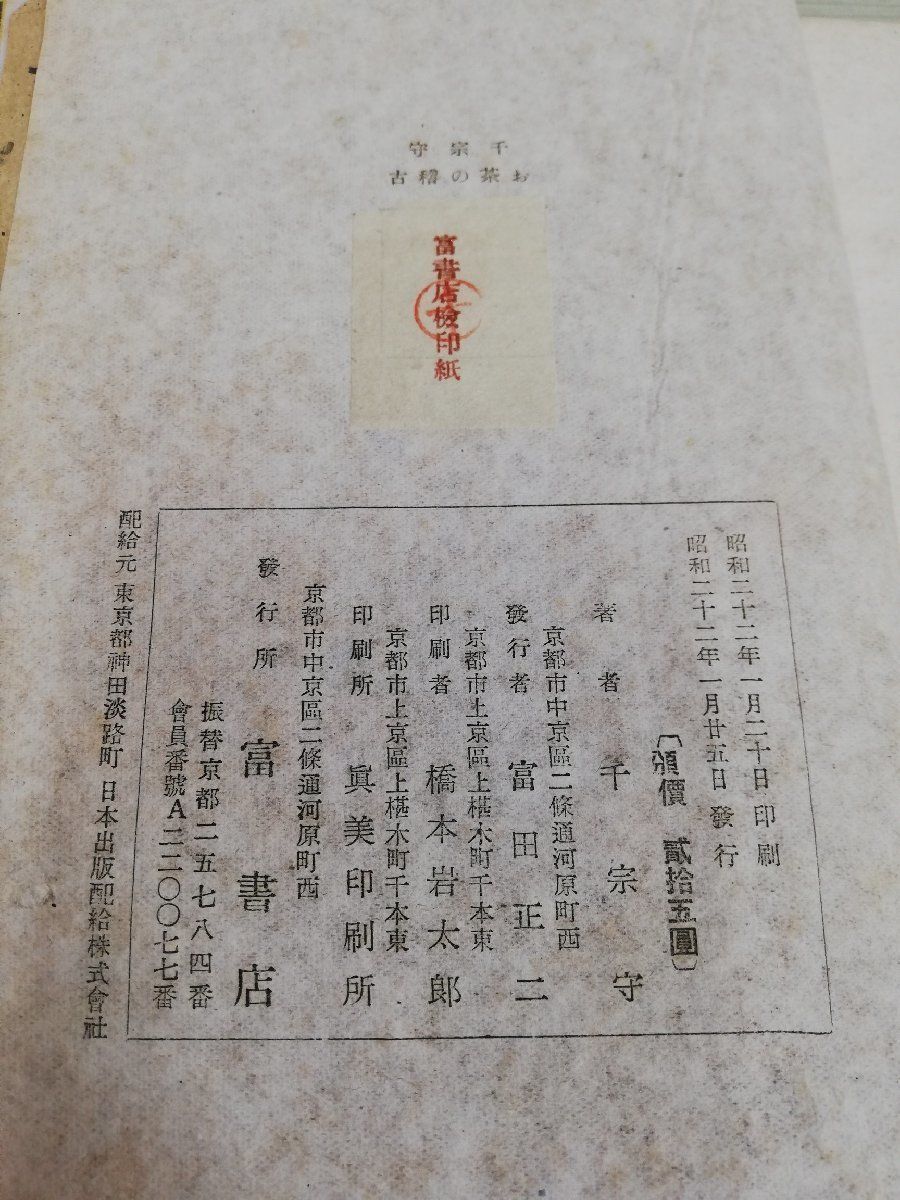 千宗守
お茶の稽古
富書店檢印紙
昭和二十二年一月二十日印刷
昭和二十二年一月廿五日發行
〔頒價 貳拾五圓〕
著者 千宗守
京都市中京區二條通河原町西
發行者 富田正二
京都市上京區上椹木町千本東
印刷者 橋本岩太郎
京都市上京區上椹木町千本東
印刷所 眞美印刷所
京都市中京區二條通河原町西
發行所 富書店
振替京都二五七八四番
會員番號A二二〇〇七七番
配給元 東京都神田淡路町 日本出版配給株式會社